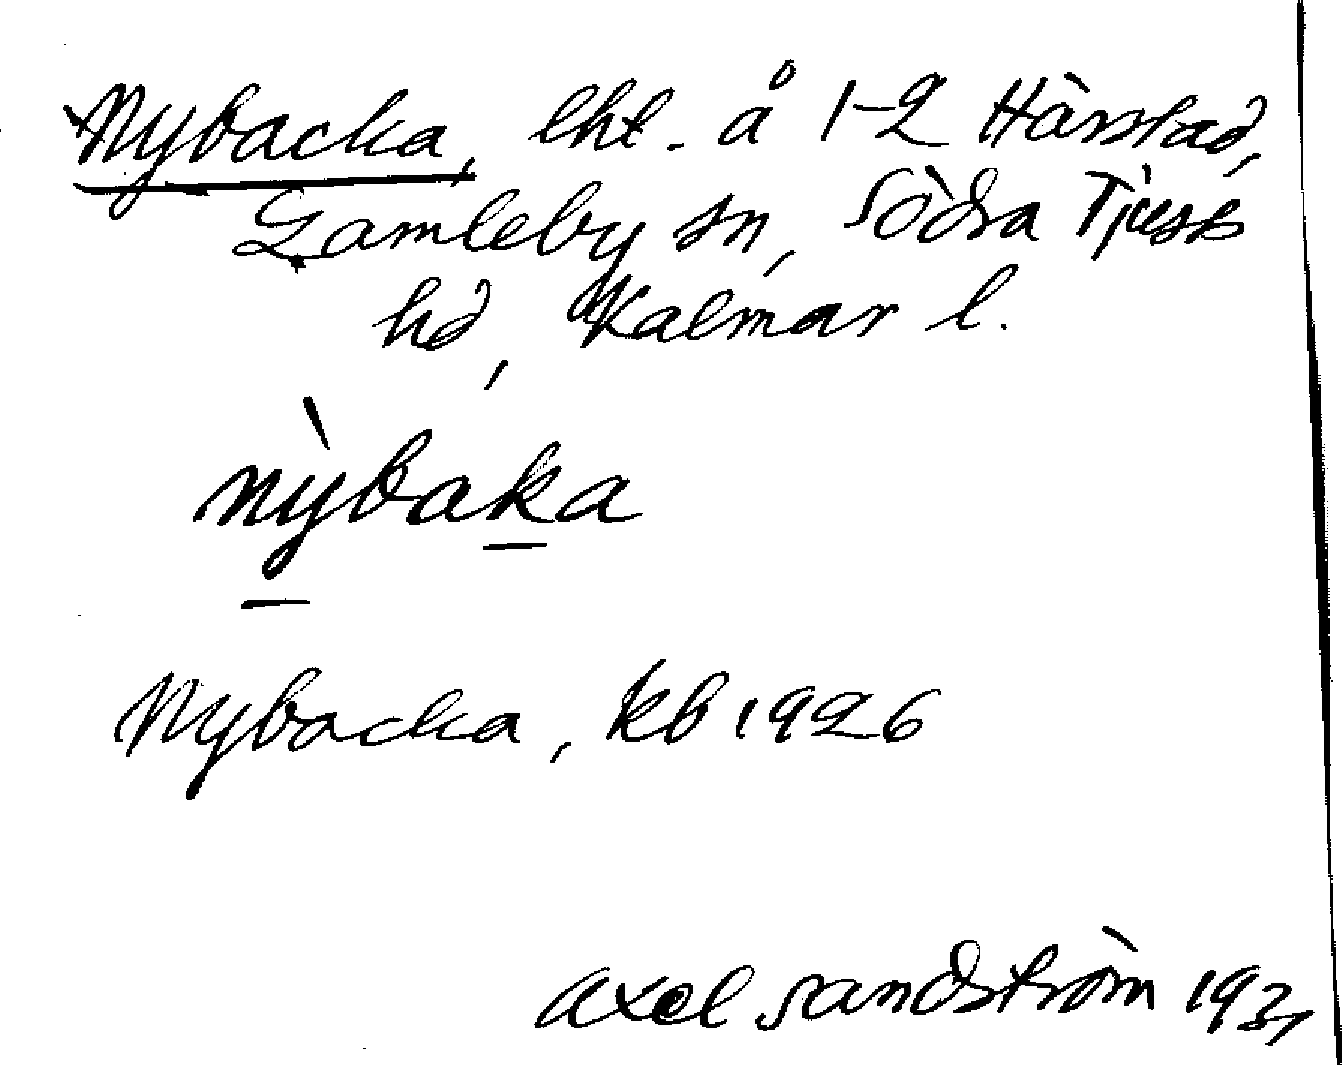 Nybacka, lht. å 1-2 Hàrstad,
Gamleby sn, Södra Tjusts
hd, Kalmar l.
nỳbaka
Nybacka, kb 1926
Axel Sandström 1931